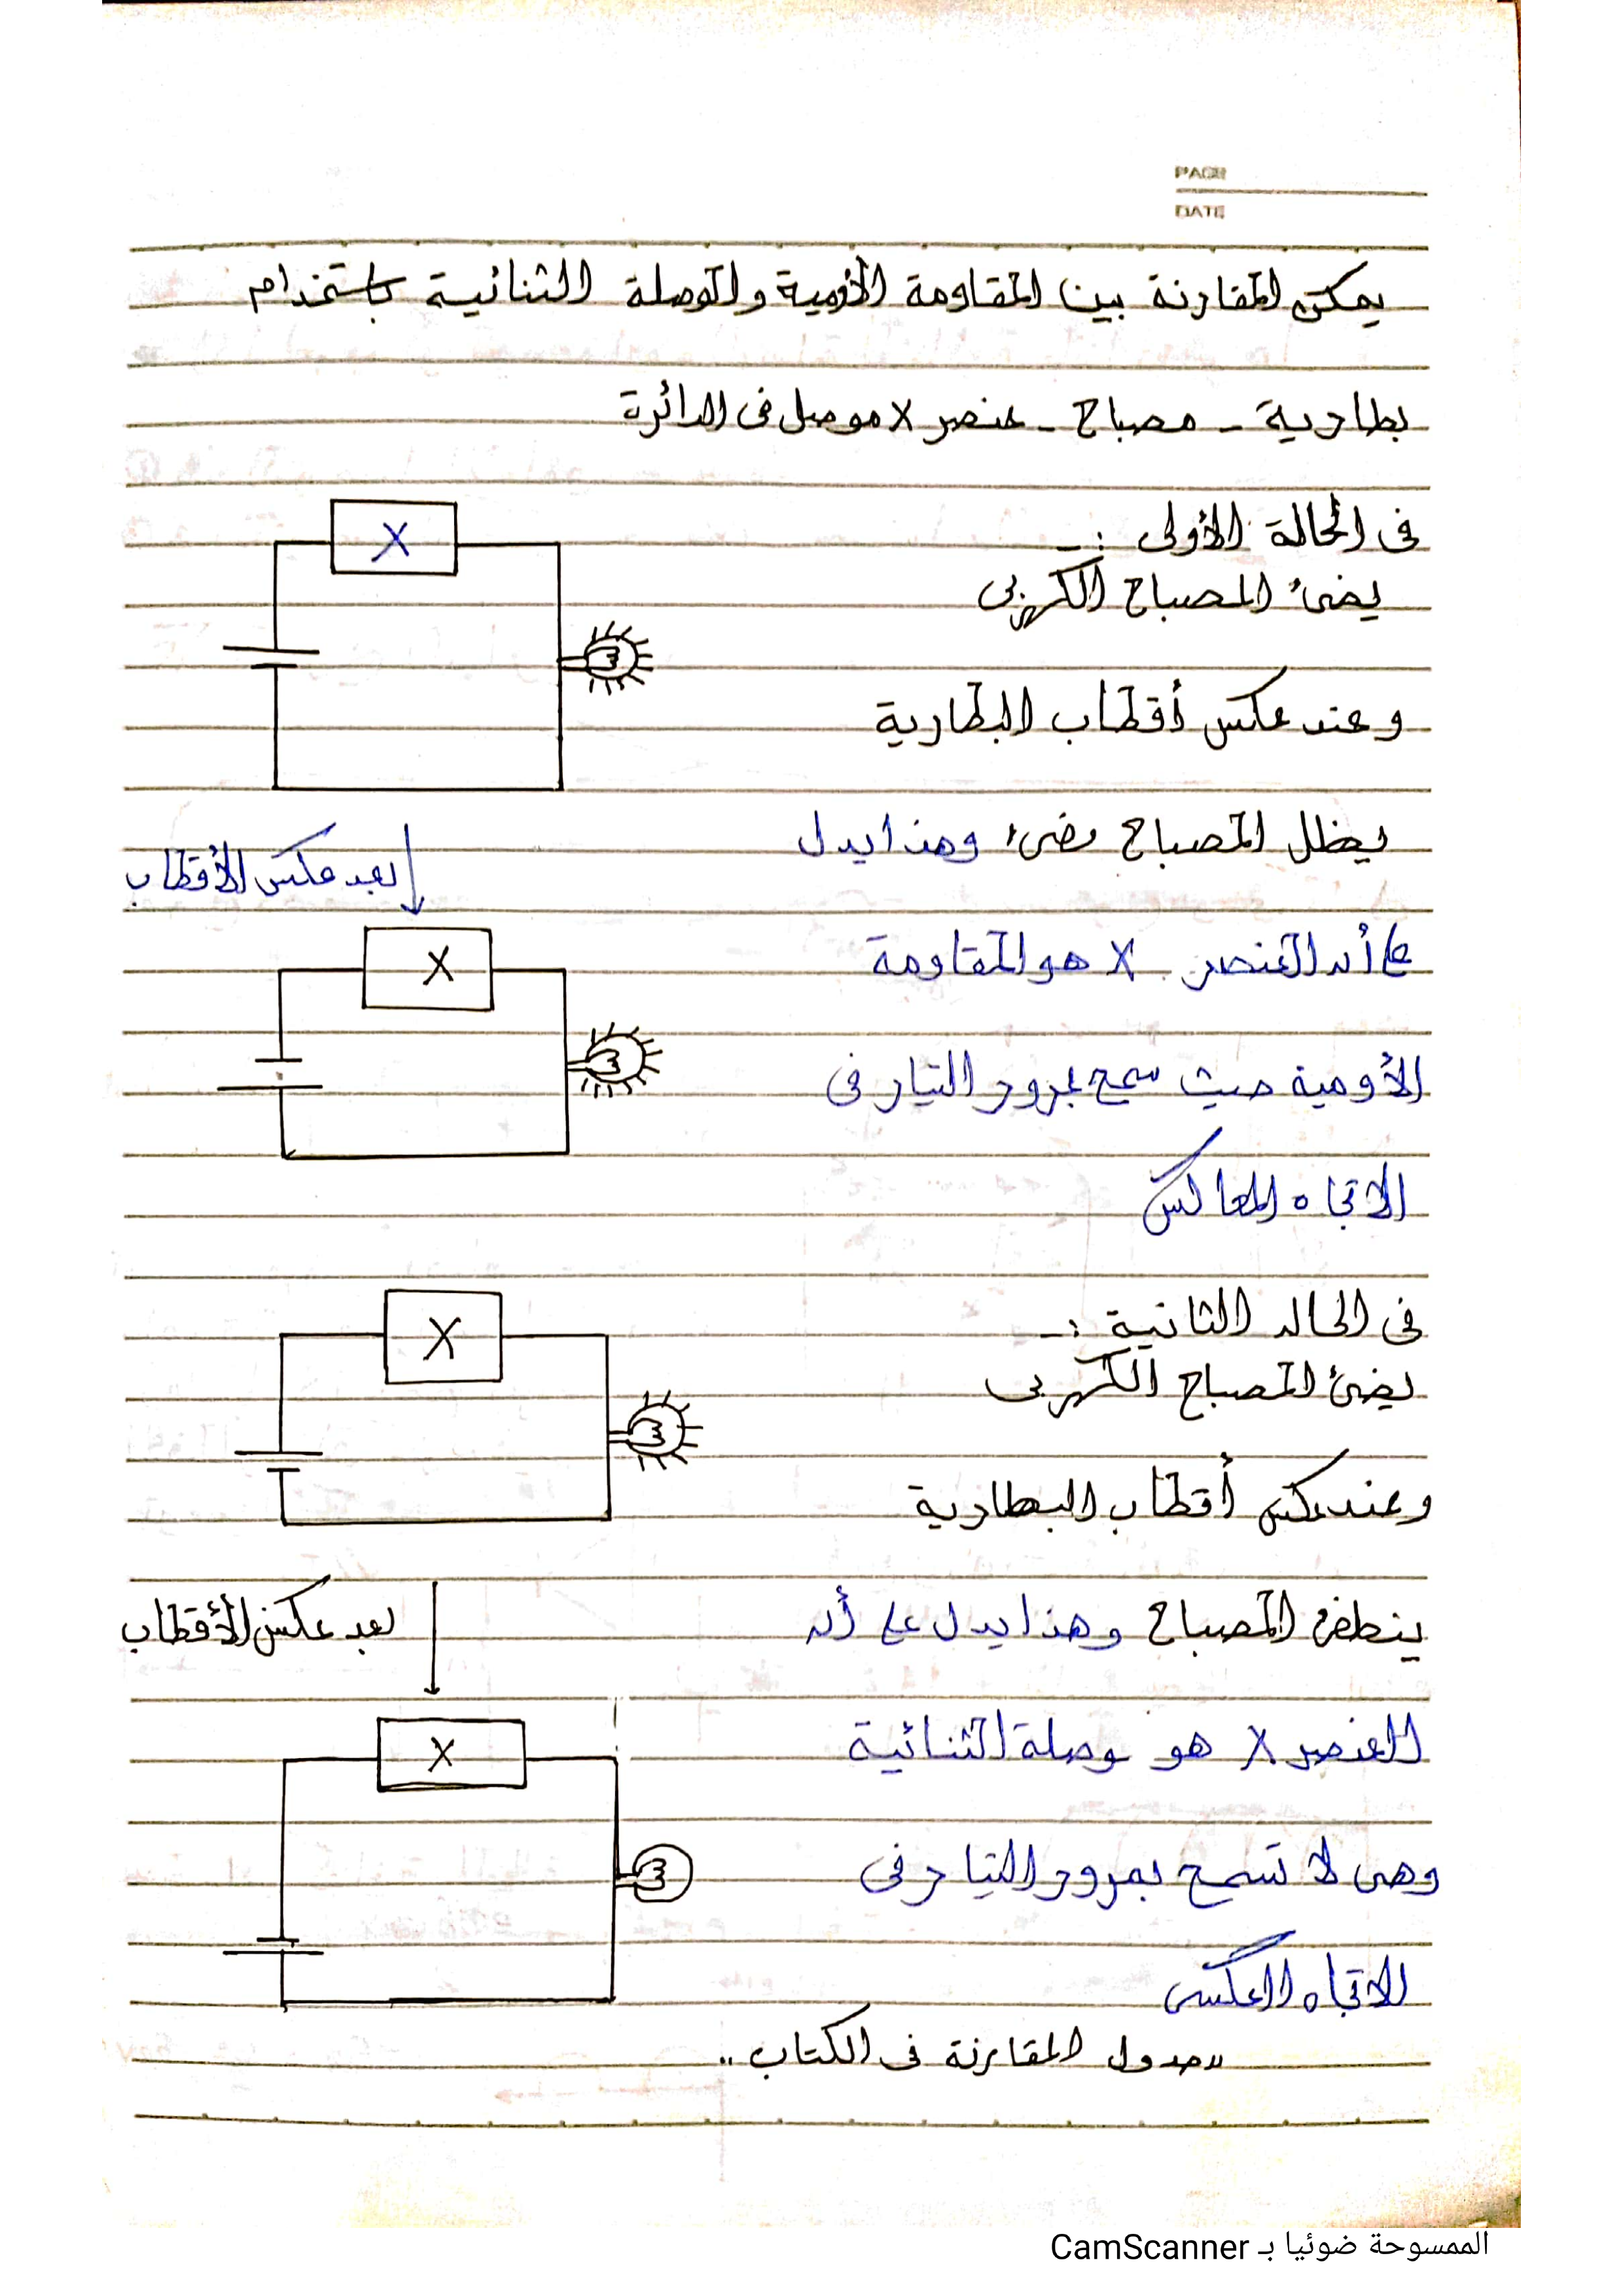 PAGE
DATE
يمكن المقارنة بين المقاومة الأومية والوصلة الثنائية باستخدام
بطارية - مصباح - عنصر X موصل فى الدائرة
فى الحالة الأولى :-
يضئ المصباح الكهربى
X
وعند عكس أقطاب البطارية
يظل المصباح مضىء وهذا يدل
بعد عكس الأقطاب
على أن العنصر X هو المقاومة
X
الأومية حيث سمح بمرور التيار فى
الاتجاه المعاكس
فى الحاله الثانية :-
X
يضئ المصباح الكهربى
وعند عكس أقطاب البطارية
ينطفئ المصباح وهذا يدل على أن
بعد عكس الأقطاب
العنصر X هو وصلة الثنائية
X
وهى لا تسمح بمرور التيار فى
الاتجاه العكسى
"جدول المقارنة فى الكتاب"
الممسوحة ضوئيا بـ CamScanner